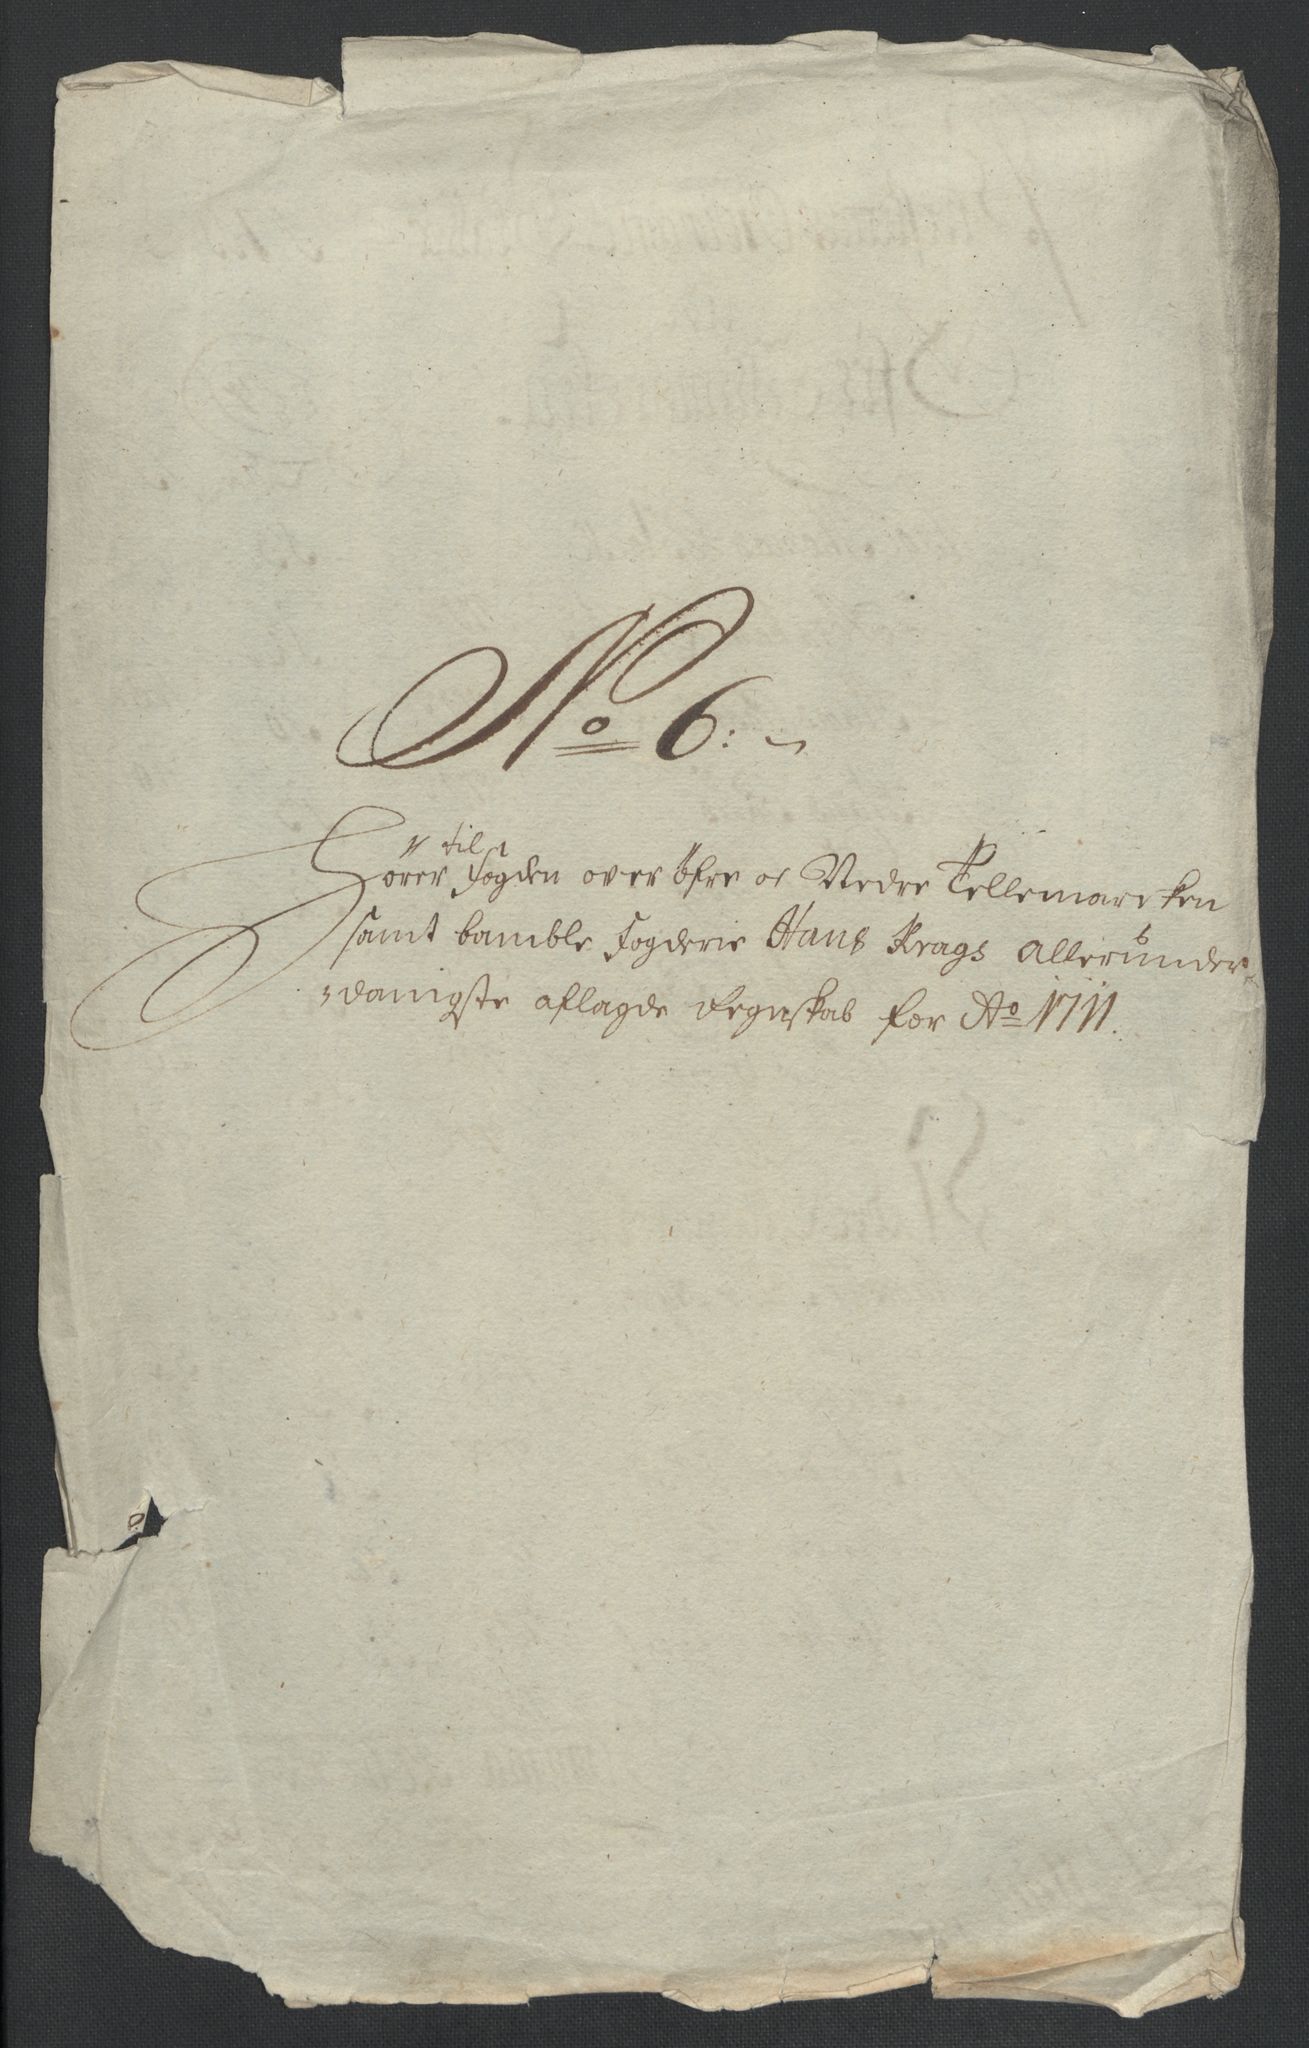 No 6:
Hörer til Fogden over Öfre oc Nedre Tellemarcken
samt bamble Fogderie Hans Krags allerunder-
danigste aflagde Regnskab for Ao 1711.